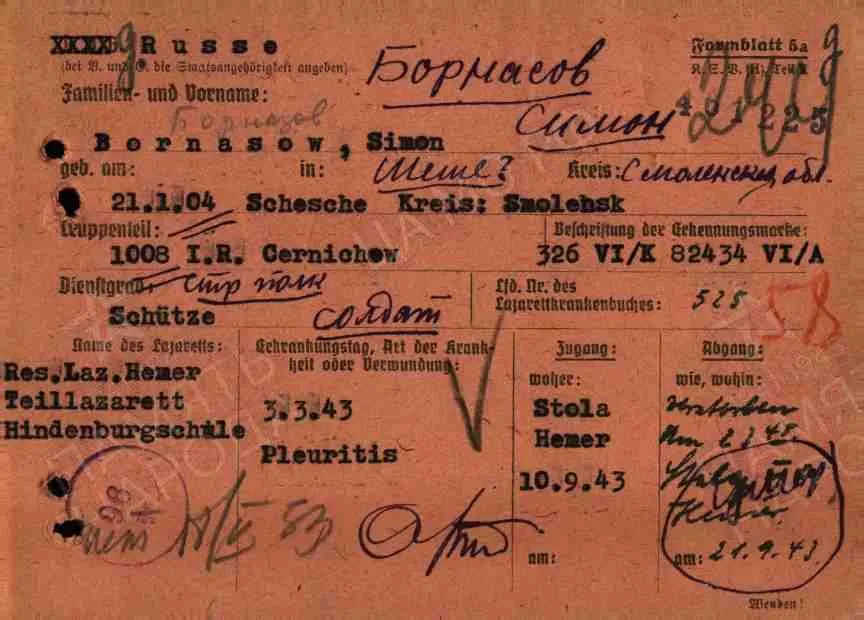 XXXX Russe
Formblatt 5a
(bei V. und O. die Staatsangehörigkeit angeben)
Familien- und Vorname:
Борнасов
Симон
Борназов
491225
Bornasow, Simon
geb. am: in: Шеше? Kreis: Смоленская обл.
21.1.04 Schesche Kreis: Smolensk
Truppenteil: Beschriftung der Erkennungsmarke:
1008 I.R. Cernichow 326 VI/K 82434 VI/A
Dienstgrad: стр полк
Lfd. Nr. des
Lazarettkrankenbuches: 525
58
Schütze солдат
Name des Lazaretts: Erkrankungstag, Art der Krank-
heit oder Verwundung:
Zugang: Abgang:
Res.Laz.Hemer
Teillazarett
Hindenburgschule
3.3.43
Pleuritis
woher: wie, wohin:
Stola
Hemer
10.9.43
Verstorben
Hemer
am: am: 21.9.43.
Wenden!